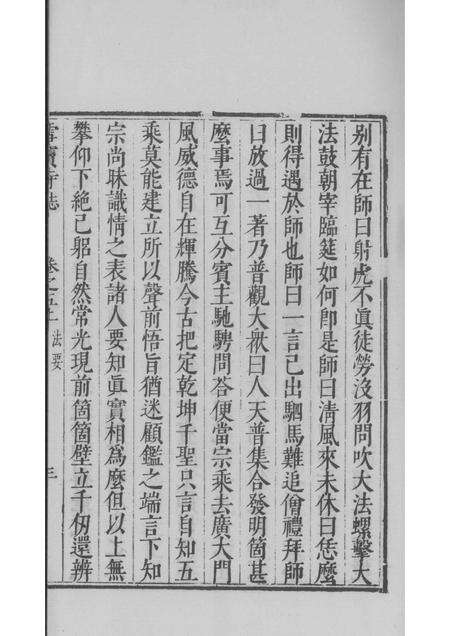 别有在師曰射虎不眞徒勞沒羽問吹大法螺擊大
法鼓朝宰臨筵如何卽是師曰淸風來未休曰恁麽
則得遇於師也師曰一言已出駟馬難追僧禮拜師
曰放過一著乃普觀大衆曰人天普集合發明箇甚
麽事焉可互分賓主馳騁問荅便當宗乘去廣大門
風威德自在輝騰今古把定乾坤千聖只言自知五
乘莫能建立所以聲前悟旨猶迷顧鑑之端言下知
宗尚昧識情之表諸人要知眞實相爲麽但以上無
攀仰下絕己躬自然常光現前箇箇壁立千仞還辨
雪竇寺誌 卷之五上 法要 三